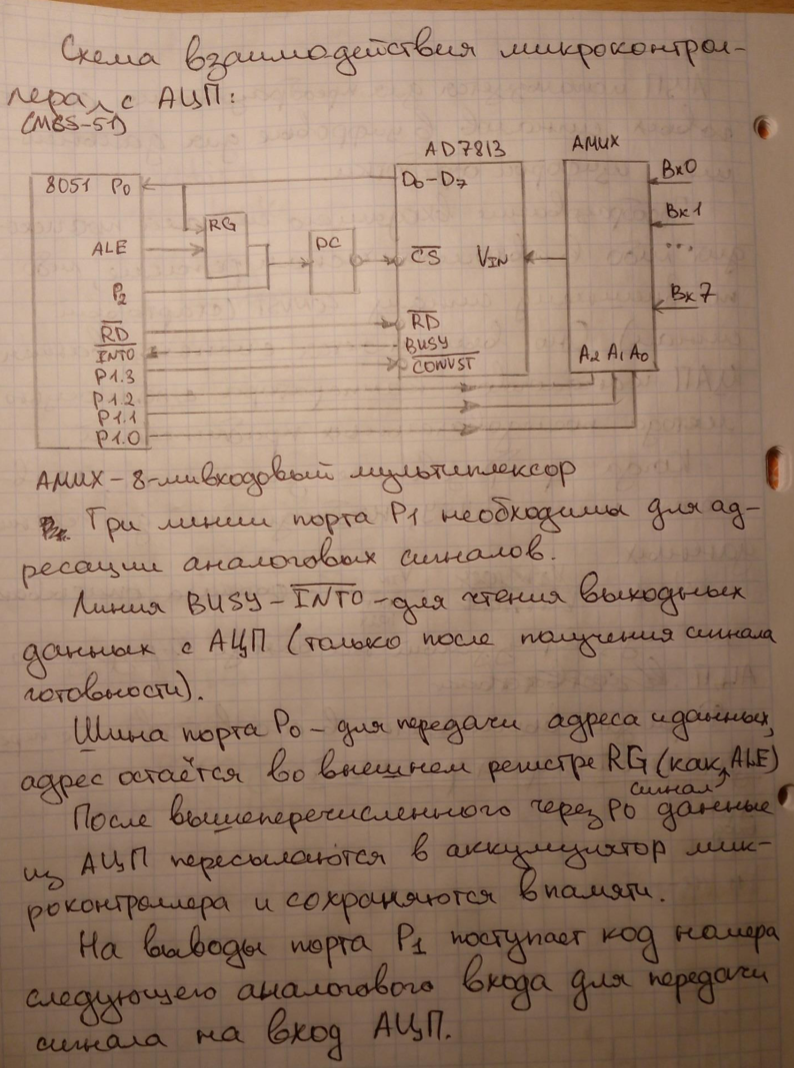 Схема взаимодействия микроконтрол-
лера с АЦП:
(MCS-51)
AD7813
AMUX
8051 P0
D0-D7
Вх0
RG
Вх1
ALE
DC
C̅S̅
VIN
...
P2
Вх7
R̅D̅
R̅D̅
I̅N̅T̅0̅
BUSY
P1.3
C̅O̅N̅V̅S̅T̅
A2 A1 A0
P1.2
P1.1
P1.0
AMUX - 8-мивходовый мультиплексор
Три линии порта P1 необходимы для ад-
ресации аналоговых сигналов.
Линия BUSY - I̅N̅T̅0̅ - для чтения выходных
данных с АЦП (только после получения сигнала
готовности).
Шина порта P0 - для передачи адреса и данных,
адрес остаётся во внешнем регистре RG (как сигнал ALE)
После вышеперечисленного через P0 данные
из АЦП пересылаются в аккумулятор мик-
роконтроллера и сохраняются в памяти.
На выводы порта P1 поступает код номера
следующего аналогового входа для передачи
сигнала на вход АЦП.